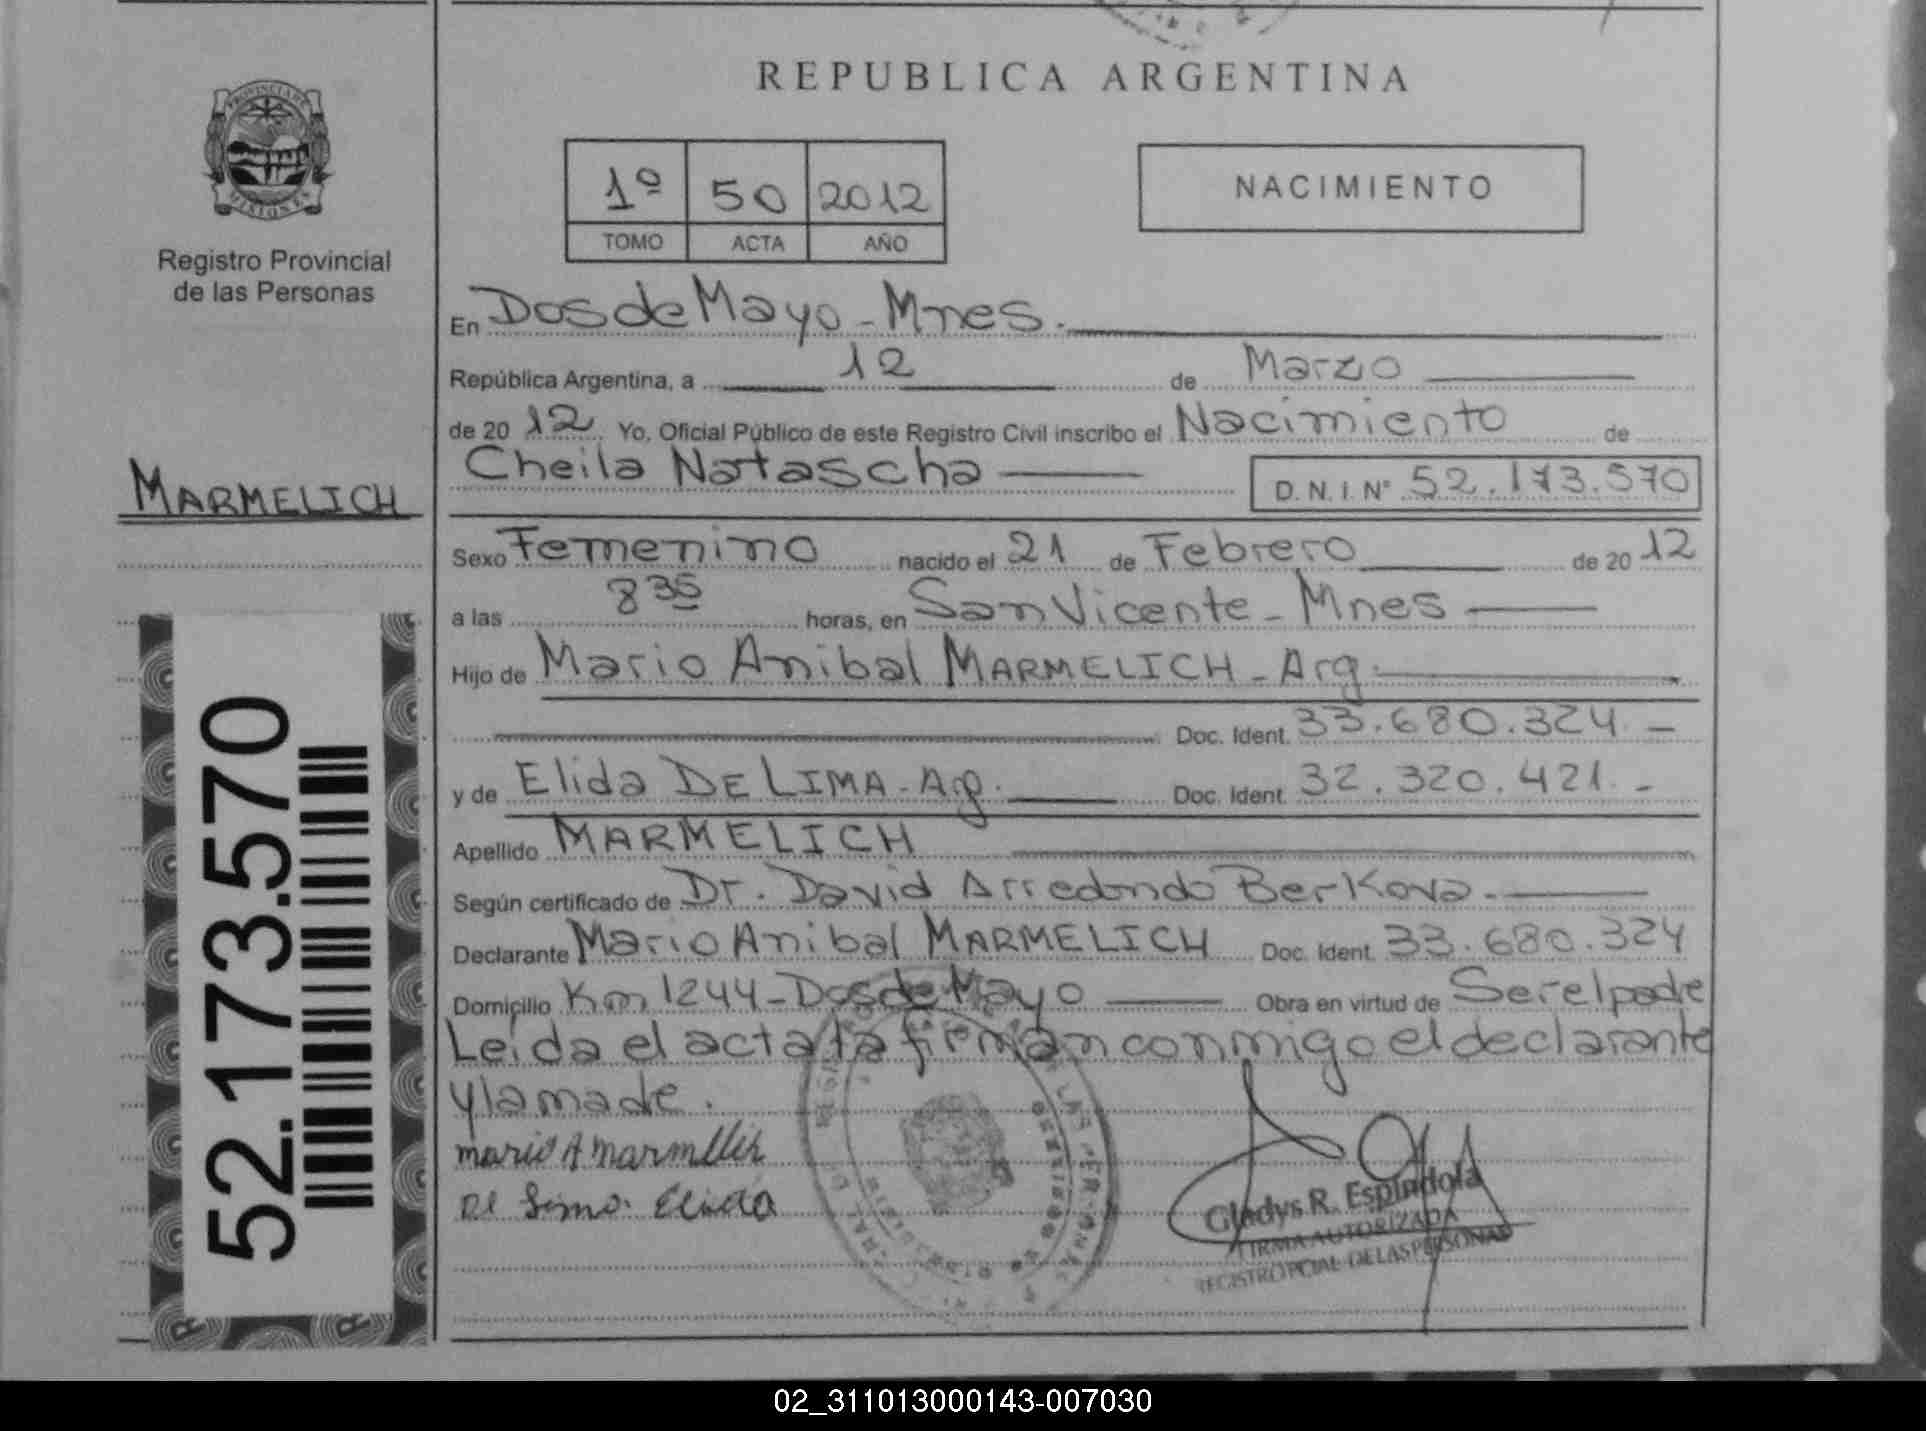 REPUBLICA ARGENTINA
PROVINCIA DE
MISIONES
Registro Provincial
de las Personas
1º 50 2012
TOMO ACTA AÑO
NACIMIENTO
En Dos de Mayo - Mnes.
República Argentina, a 12 de Marzo
de 20 12 Yo, Oficial Público de este Registro Civil inscribo el Nacimiento de
Cheila Natascha D. N. I. Nº 52.173.570
MARMELICH
Sexo Femenino nacido el 21 de Febrero de 20 12
a las 8 35 horas, en San Vicente - Mnes
Hijo de Mario Anibal MARMELICH - Arg.
Doc. Ident. 33.680.324. -
y de Elida DE LIMA - Arg. Doc. Ident. 32.320.421. -
Apellido MARMELICH
Según certificado de Dr. David Arredondo Berkova.
Declarante Mario Anibal MARMELICH Doc. Ident. 33.680.324
Domicilio Km 1244 - Dos de Mayo Obra en virtud de Ser el padre
Leída el acta la firman conmigo el declarante
y la made.
mario A marmelich
De Lima. Elida
Gladys R. Espindola
FIRMA AUTORIZADA
REGISTRO PCIAL DE LAS PERSONAS
52.173.570
02_311013000143-007030